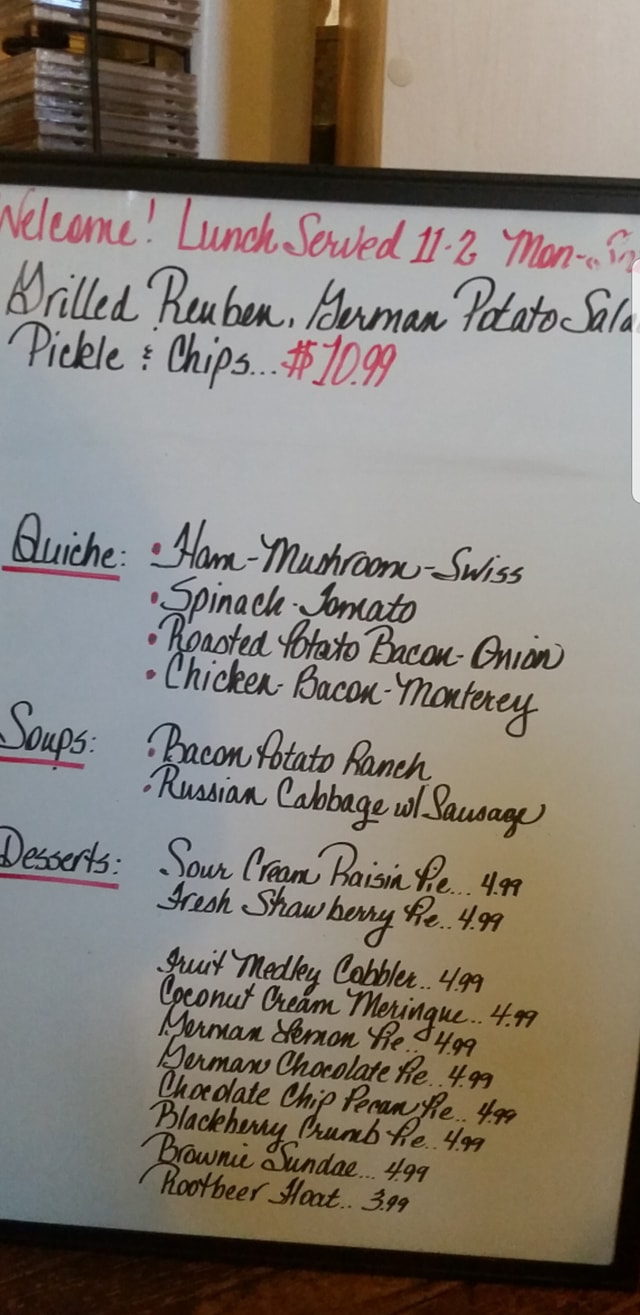 Welcome! Lunch Served 11-2 Mon-
Grilled Reuben, German Potato Sala
Pickle & Chips... $10.99
Quiche: • Ham-Mushroom-Swiss
• Spinach-Tomato
• Roasted Potato Bacon-Onion
• Chicken-Bacon-Monterey
Soups: • Bacon Potato Ranch
• Russian Cabbage w/ Sausage
Desserts: Sour Cream Raisin Pie... 4.99
Fresh Strawberry Pie.. 4.99
Fruit Medley Cobbler.. 4.99
Coconut Cream Meringue.. 4.99
German Lemon Pie.. 4.99
German Chocolate Pie.. 4.99
Chocolate Chip Pecan Pie.. 4.99
Blackberry Crumb Pie.. 4.99
Brownie Sundae... 4.99
Rootbeer Float.. 3.99